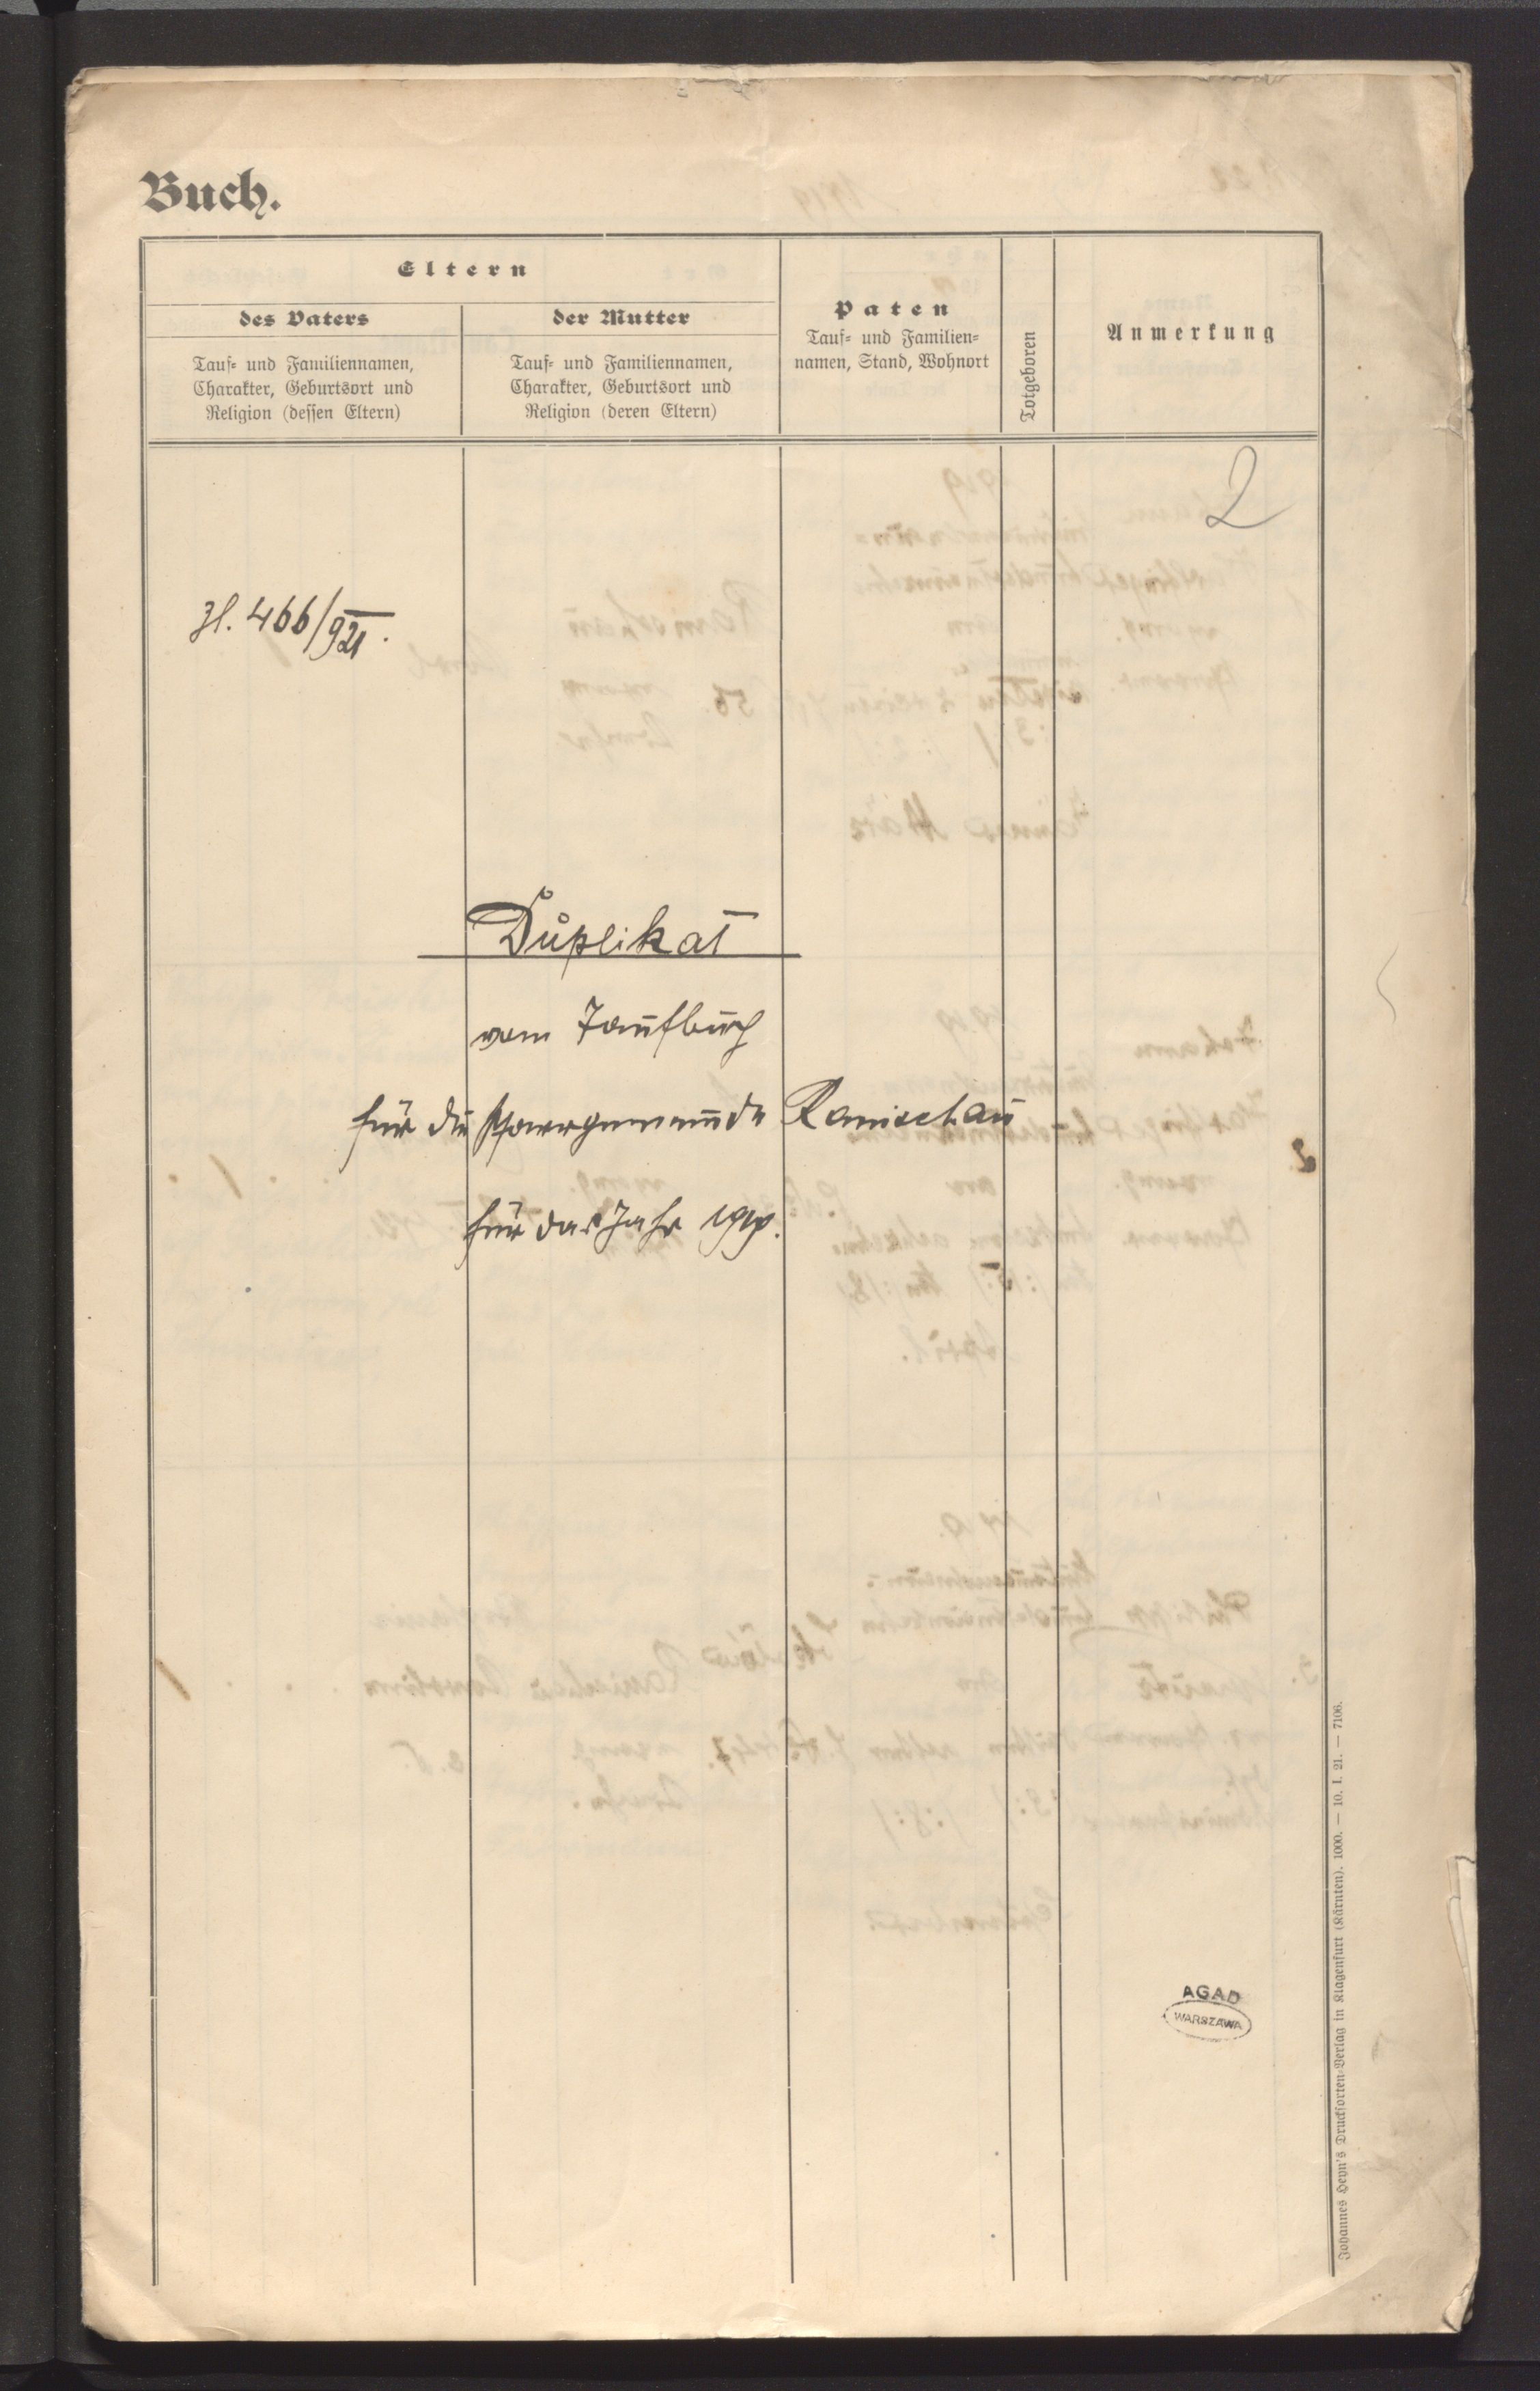 Buch.
Eltern
des Vaters
der Mutter
Tauf- und Familiennamen,
Charakter, Geburtsort und
Religion (dessen Eltern)
Tauf- und Familiennamen,
Charakter, Geburtsort und
Religion (deren Eltern)
Paten
Tauf- und Familien-
namen, Stand, Wohnort
Totgeboren
Anmerkung
2
Zl. 466/921.
Duplikat
vom Taufbuch
für die Pfarrgemeinde Ranischau
für das Jahr 1919.
AGAD
WARSZAWA
Johannes Heyn's Drucksorten-Verlag in Klagenfurt (Kärnten). 1000. — 10. I. 21. — 7106.